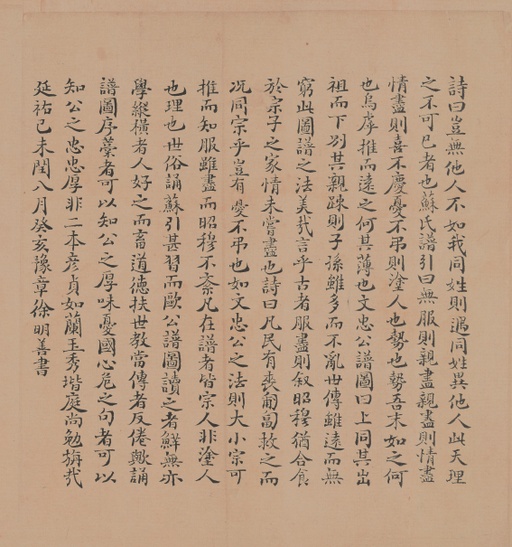 詩曰豈無他人不如我同姓則遇同姓異他人此天理
之不可已者也蘇氏譜引曰無服則親盡親盡則情盡
情盡則喜不慶憂不弔則塗人也勢也勢吾末如之何
也烏虖推而遠之何其薄也文忠公譜圖曰上同其出
祖而下別其親疎則子孫雖多而不亂世傳雖遠而無
窮此圖譜之法美哉言乎古者服盡則叙昭穆猶合食
於宗子之家情未嘗盡也詩曰凡民有喪匍匐救之而
况同宗乎豈有憂不弔也如文忠公之法則大小宗可
推而知服雖盡而昭穆不紊凡在譜者皆宗人非塗人
也理也世俗誦蘇引甚習而歐公譜圖讀之者鮮無亦
學縱橫者人好之而畜道德扶世教當傳者反倦歟誦
譜圖序藁者可以知公之厚味憂國心危之句者可以
知公之忠忠厚非二本彦貞如蘭玉秀堦庭尚勉旃哉
延祐己未閏八月癸亥豫章徐明善書